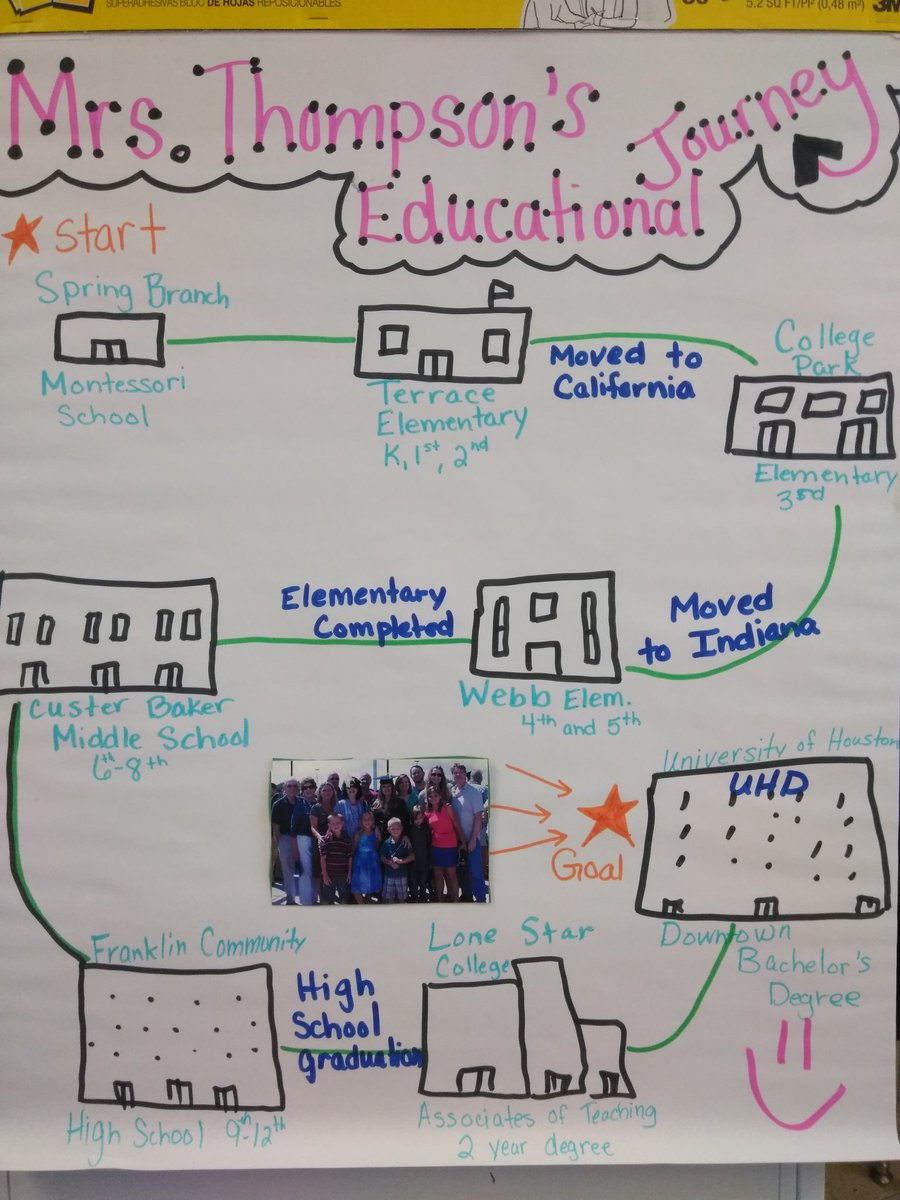 SUPERADHESIVAS BLOC DE HOJAS REPOSICIONABLES
5.2 SQ FT/PI² (0,48 m²) 3M
Mrs. Thompson's
Educational
Journey
Start
Spring Branch
Montessori
School
Terrace
Elementary
K, 1st, 2nd
Moved to
California
College
Park
Elementary
3rd
Moved
to Indiana
Webb Elem.
4th and 5th
Elementary
Completed
Custer Baker
Middle School
6th-8th
Franklin Community
High School 9th-12th
High
School
graduation
Lone Star
College
Associates of Teaching
2 year degree
University of Houston
UHD
Downtown
Bachelor's
Degree
Goal